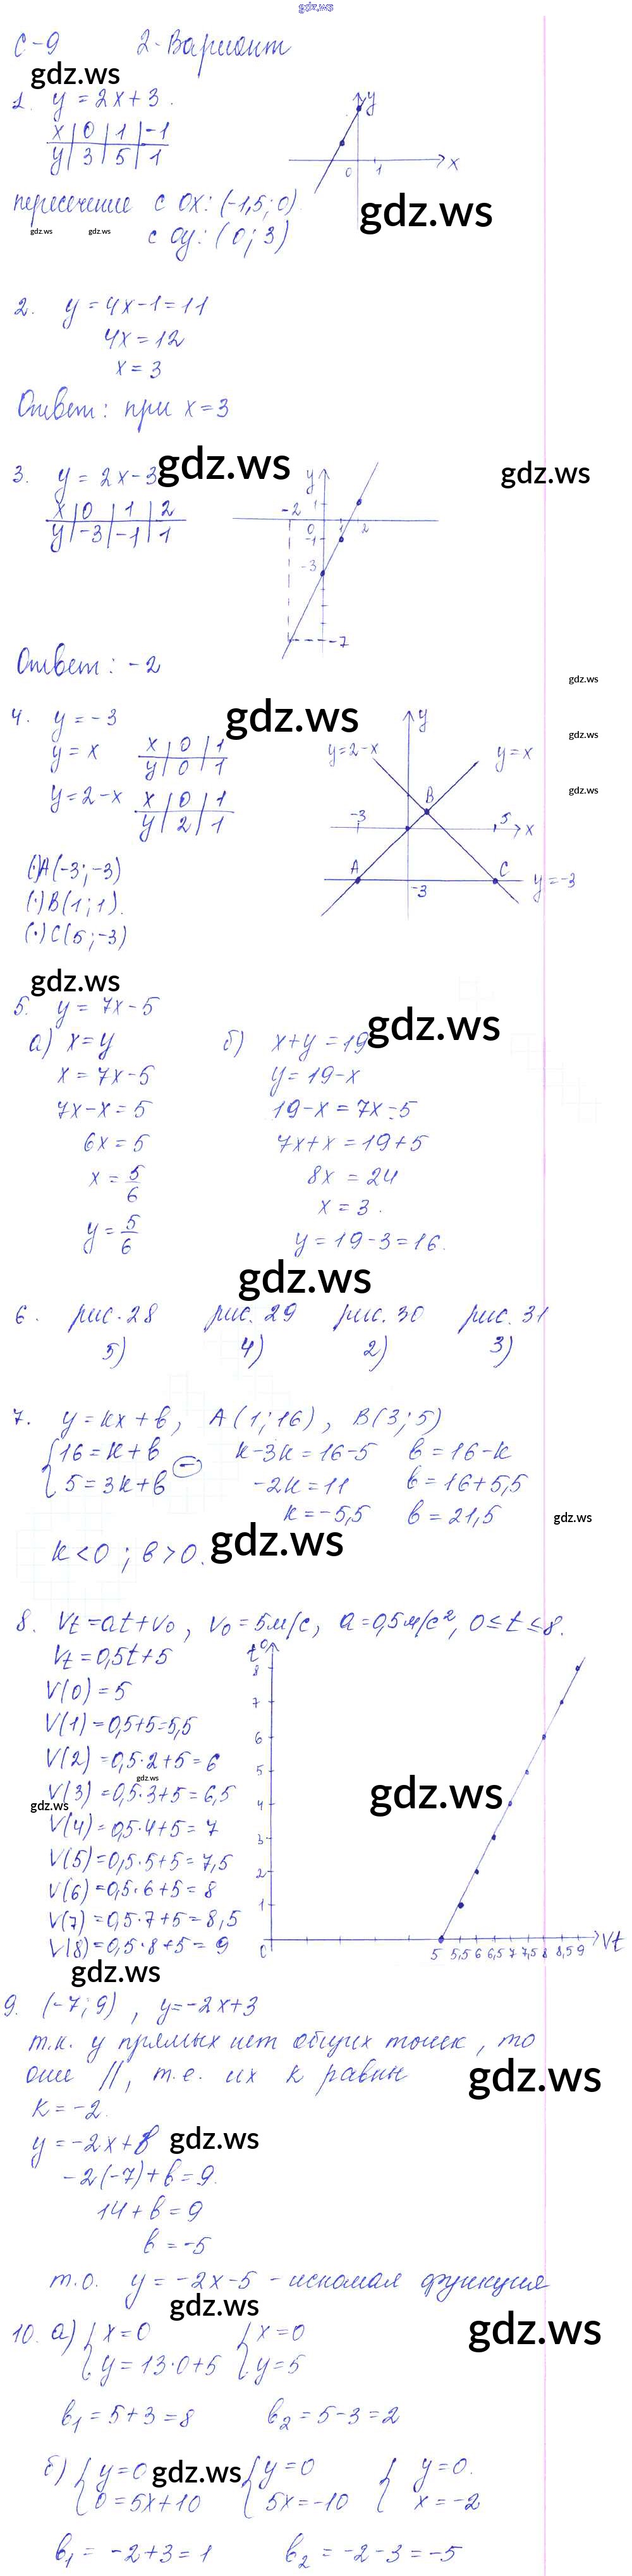 gdz.ws
С-9 2-Вариант
gdz.ws
1. y = 2x + 3.
x | 0 | 1 | -1
y | 3 | 5 | 1
y
0 1 x
пересечение с ox: (-1,5; 0)
gdz.ws
gdz.ws gdz.ws
с oy: (0; 3)
2. y = 4x - 1 = 11
4x = 12
x = 3
Ответ: при x = 3
3. y = 2x - 3
gdz.ws
gdz.ws
x | 0 | 1 | 2
y | -3 | -1 | 1
y
1
-2 0 1 2
-1
-3
-7
Ответ: -2
gdz.ws
4. y = -3
gdz.ws
y = x
x | 0 | 1
y | 0 | 1
y = 2 - x
x | 0 | 1
y | 2 | 1
y
y=2-x y=x
gdz.ws
gdz.ws
B
-3 5 x
A C
-3 y=-3
(·)A(-3; -3)
(·)B(1; 1).
(·)C(5; -3)
gdz.ws
5. y = 7x - 5
gdz.ws
а) x = y
x = 7x - 5
7x - x = 5
6x = 5
x = 5/6
y = 5/6
б) x + y = 19
y = 19 - x
19 - x = 7x - 5
7x + x = 19 + 5
8x = 24
x = 3.
y = 19 - 3 = 16.
gdz.ws
6. рис. 28 рис. 29 рис. 30 рис. 31
5) 4) 2) 3)
7. y = kx + b, A(1; 16), B(3; 5)
16 = k + b k - 3k = 16 - 5 b = 16 - k
5 = 3k + b (-) -2k = 11 b = 16 + 5,5
k = -5,5 b = 21,5
gdz.ws
k < 0; b > 0.
gdz.ws
8. Vt = at + v₀, v₀ = 5м/с, a = 0,5м/с², 0 ≤ t ≤ 8.
Vt = 0,5t + 5
V(0) = 5
V(1) = 0,5 + 5 = 5,5
V(2) = 0,5·2 + 5 = 6
gdz.ws
V(3) = 0,5·3 + 5 = 6,5
gdz.ws
V(4) = 0,5·4 + 5 = 7
V(5) = 0,5·5 + 5 = 7,5
V(6) = 0,5·6 + 5 = 8
V(7) = 0,5·7 + 5 = 8,5
V(8) = 0,5·8 + 5 = 9
t°
8
7
6
5
4
gdz.ws
3
2
1
0 5 5,5 6 6,5 7 7,5 8 8,5 9 Vt
gdz.ws
9. (-7; 9), y = -2x + 3
т.к. у прямых нет общих точек, то
они //, т.е. их k равны
gdz.ws
k = -2.
y = -2x + b
gdz.ws
-2(-7) + b = 9.
14 + b = 9
b = -5
т.о. y = -2x - 5 - искомая функция
gdz.ws
10. а) x = 0 x = 0
gdz.ws
y = 13·0 + 5 y = 5
b₁ = 5 + 3 = 8 b₂ = 5 - 3 = 2
б) y = 0 y = 0 y = 0.
gdz.ws
0 = 5x + 10 5x = -10 x = -2
b₁ = -2 + 3 = 1 b₂ = -2 - 3 = -5